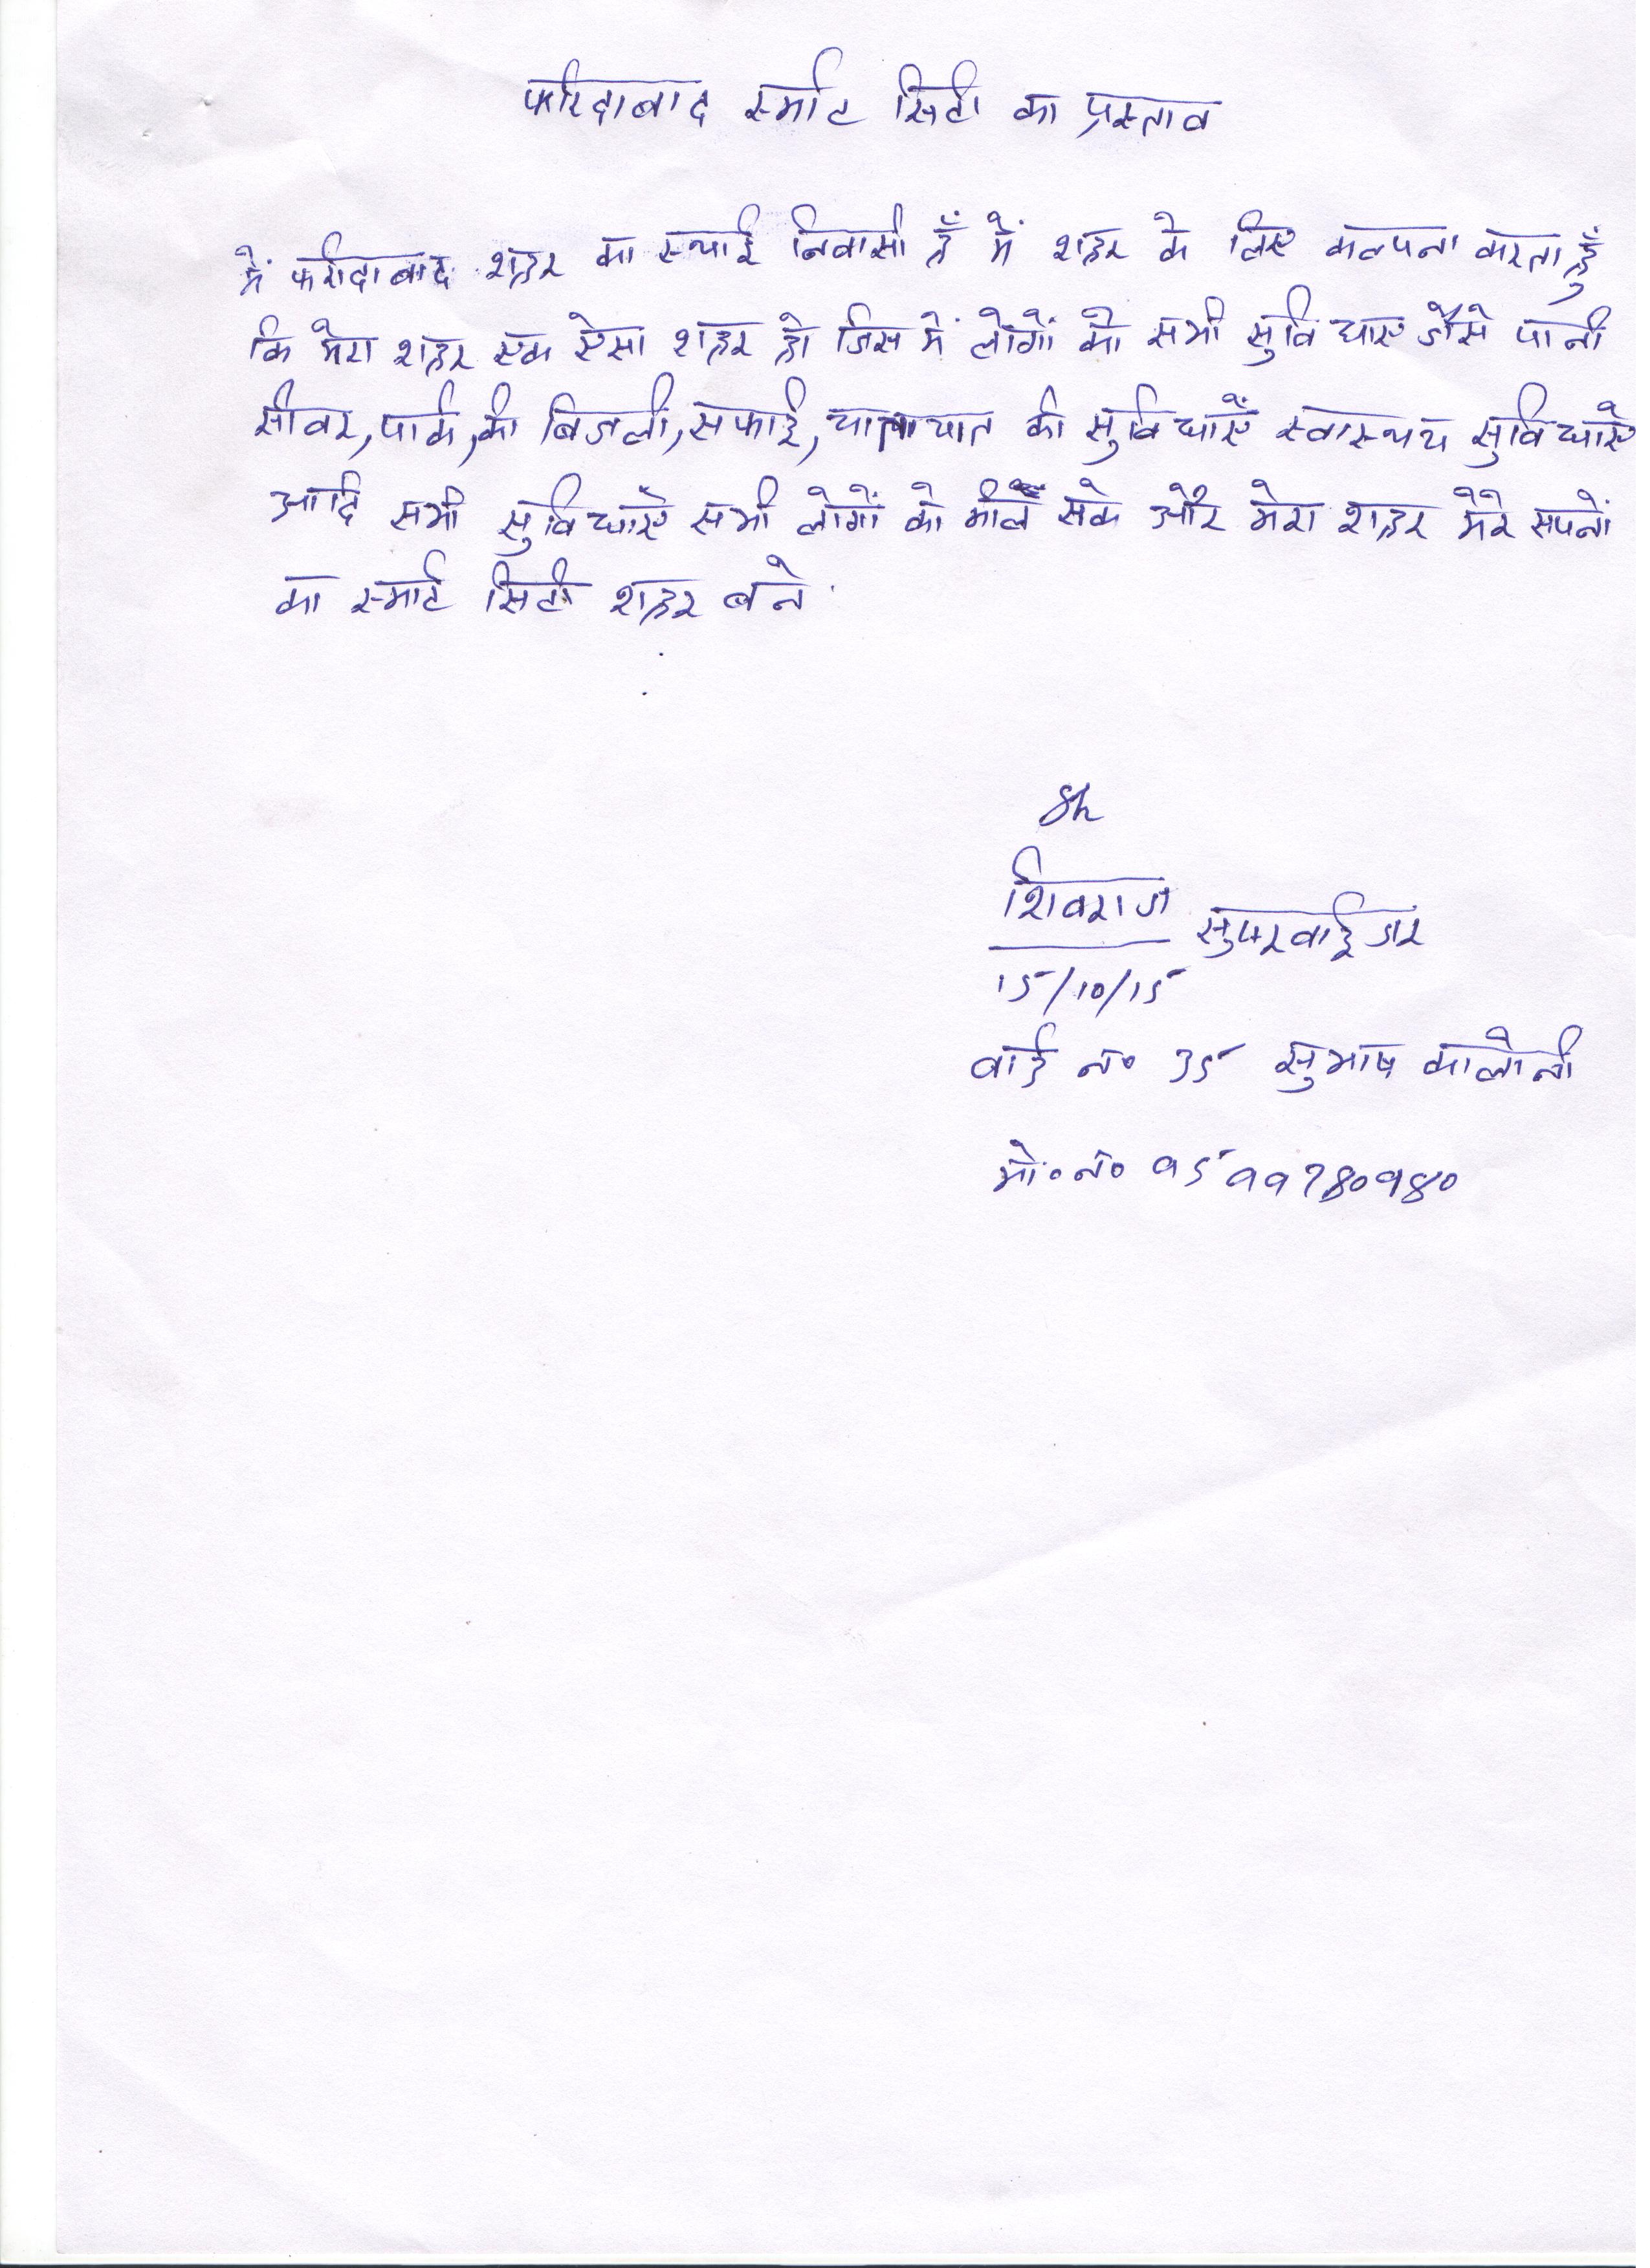 फरिदाबाद स्मार्ट सिटी का प्रस्ताव
में फरीदाबाद शहर का स्थाई निवासी हूँ में शहर के लिए कल्पना करता हूँ
कि मेरा शहर एक ऐसा शहर हो जिस में लोगों को सभी सुविधाए जैसे पानी
सीवर, पार्क, की बिजली, सफाई, यातायात की सुविधाएँ स्वास्थय सुविधाऐ
आदि सभी सुविधाएँ सभी लोगों को मील सके और मेरा शहर मेरे सपनों
का स्मार्ट सिटी शहर बने
Sh
शिवराज सुपरवाईजर
15/10/15
वार्ड न० 35 सुभाष कालोनी
मो० न०